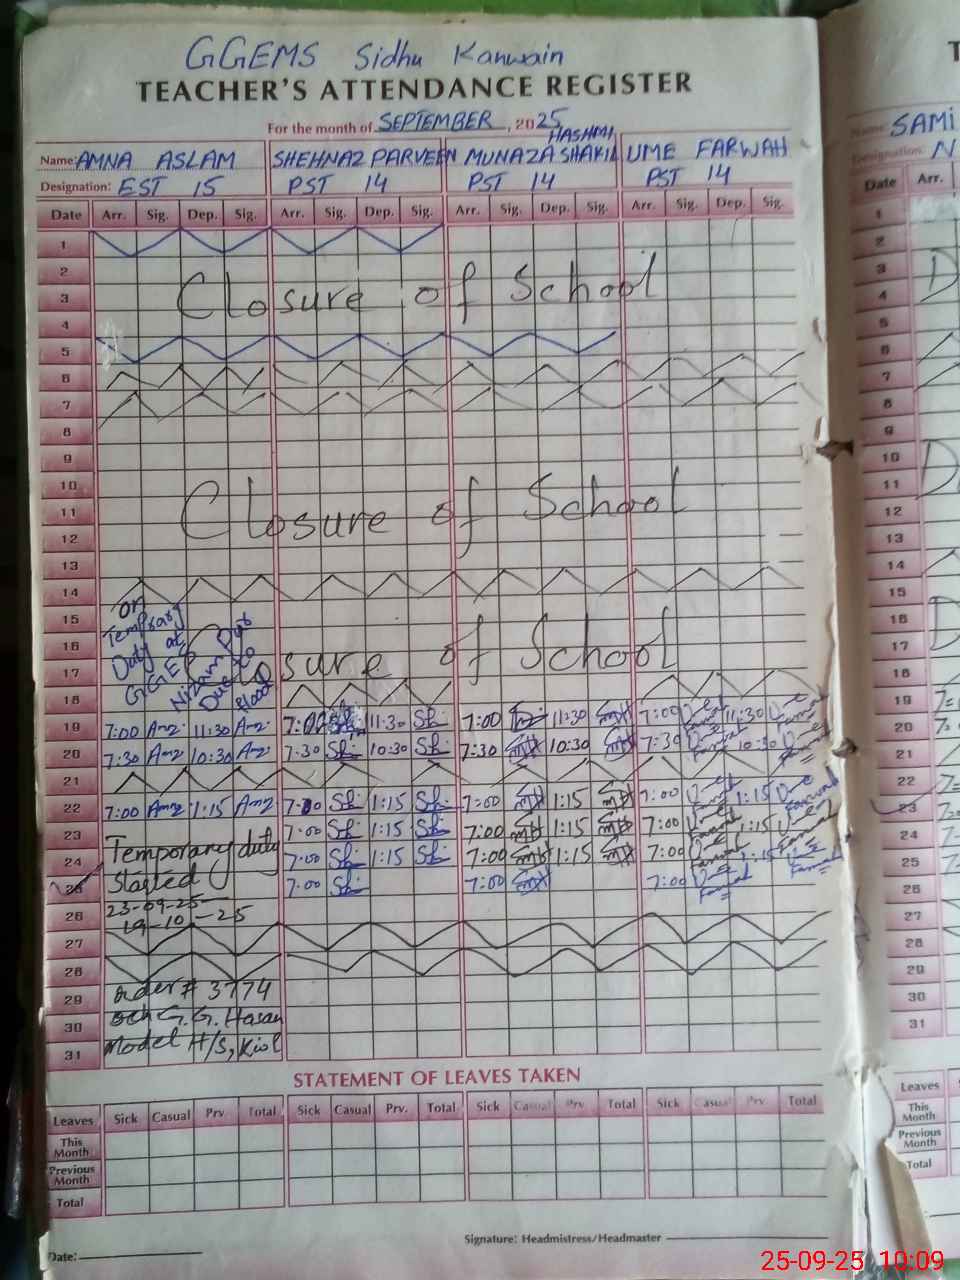 GGEMS Sidhu Kanwain
TEACHER'S ATTENDANCE REGISTER
For the month of SEPTEMBER, 2025
Name: AMNA ASLAM SHEHNAZ PARVEEN MUNAZA SHAKIL HASHMI UME FARWAH
Designation: EST 15 PST 14 PST 14 PST 14
Date Arr. Sig. Dep. Sig. Arr. Sig. Dep. Sig. Arr. Sig. Dep. Sig. Arr. Sig. Dep. Sig.
1
2
3 Closure of School
4
5
6
7
8
9
10
11 Closure of School
12
13
14
15 On Temprary
16 Duty at
17 GGES Nizam Pur Closure of School
18 Due to Flood
19 7:00 Amz 11:30 Amz 7:00 Sh 11:30 Sh 7:00 11:30 7:00 Ume Farwah 11:30 Ume Farwah
20 7:30 Amz 10:30 Amz 7:30 Sh 10:30 Sh 7:30 10:30 7:30 Ume Farwah 10:30 Ume Farwah
21
22 7:00 Amz 1:15 Amz 7:00 Sh 1:15 Sh 7:00 1:15 7:00 Ume Farwah 1:15 Ume Farwah
23 Temporary duty 7:00 Sh 1:15 Sh 7:00 1:15 7:00 Ume Farwah 1:15 Ume Farwah
24 Started 7:00 Sh 1:15 Sh 7:00 1:15 7:00 Ume Farwah 1:15 Ume Farwah
25 23-09-25- 7:00 Sh 7:00 7:00 Ume Farwah
26 19-10-25
27
28
29 order # 3774
30 G.G. Hasan
31 Model H/S,
STATEMENT OF LEAVES TAKEN
Leaves Sick Casual Prv. Total Sick Casual Prv. Total Sick Casual Prv. Total Sick Casual Prv. Total
This Month
Previous Month
Total
Signature: Headmistress/Headmaster
Date:
T
Name: SAMI
Designation: N
Date Arr.
1
2
3
4
5
6
7
8
9
10
11
12
13
14
15
16
17
18
19
20
21
22
23
24
25
26
27
28
29
30
31
Leaves
This Month
Previous Month
Total
25-09-25 10:09